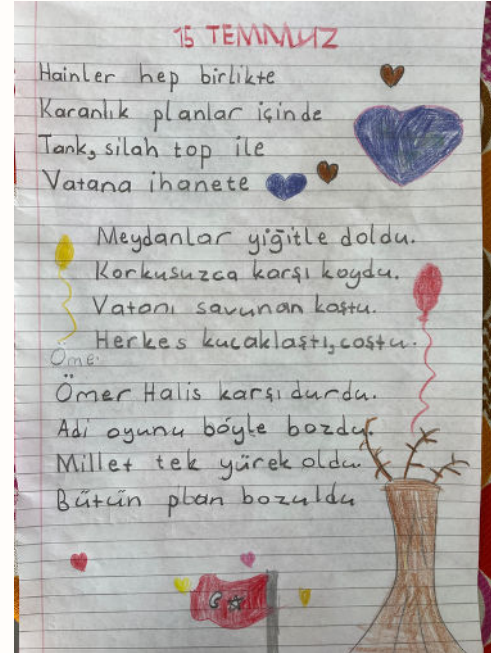 15 TEMMUZ
Hainler hep birlikte
Karanlık planlar içinde
Tank, silah top ile
Vatana ihanete
Meydanlar yiğitle doldu.
Korkusuzca karşı koydu.
Vatanı savunan koştu.
Herkes kucaklaştı, coştu.
Öme
Ömer Halis karşı durdu.
Adi oyunu böyle bozdu.
Millet tek yürek oldu.
Bütün plan bozuldu